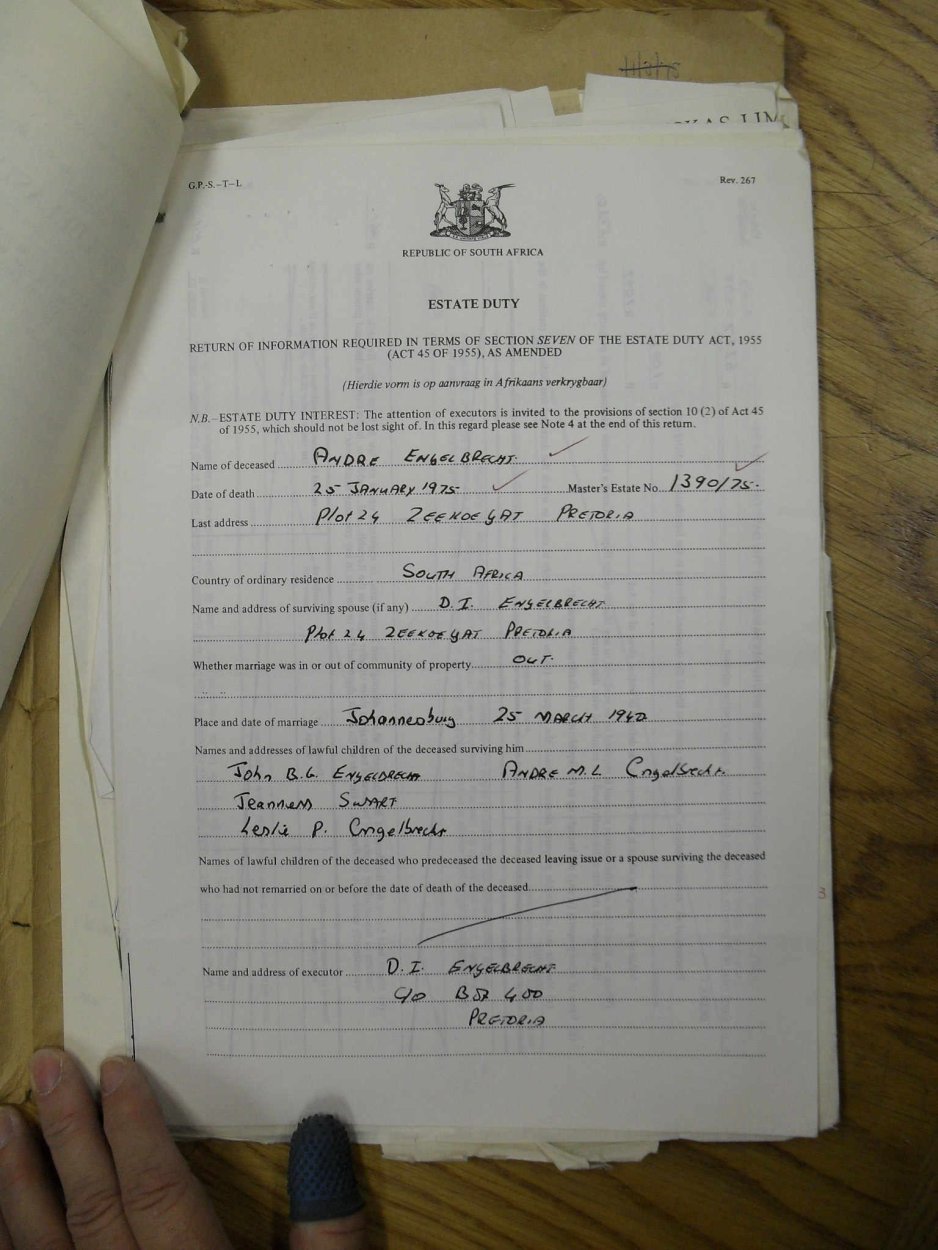 G.P.-S.-T-L
Rev. 267
REPUBLIC OF SOUTH AFRICA
ESTATE DUTY
RETURN OF INFORMATION REQUIRED IN TERMS OF SECTION SEVEN OF THE ESTATE DUTY ACT, 1955
(ACT 45 OF 1955), AS AMENDED
(Hierdie vorm is op aanvraag in Afrikaans verkrygbaar)
N.B.-ESTATE DUTY INTEREST: The attention of executors is invited to the provisions of section 10 (2) of Act 45
of 1955, which should not be lost sight of. In this regard please see Note 4 at the end of this return.
Name of deceased ANDRE ENGELBRECHT
Date of death 25 JANUARY 1975 Master's Estate No. 1390/75
Last address Plot 24 ZEEKOEGAT PRETORIA
Country of ordinary residence SOUTH AFRICA
Name and address of surviving spouse (if any) D. I. ENGELBRECHT
Plot 24 ZEEKOEGAT PRETORIA
Whether marriage was in or out of community of property OUT
Place and date of marriage Johannesburg 25 MARCH 1940
Names and addresses of lawful children of the deceased surviving him
John B.G. ENGELBRECHT ANDRE M.L. Engelbrecht
SWART
Leslie P. Engelbrecht
Names of lawful children of the deceased who predeceased the deceased leaving issue or a spouse surviving the deceased
who had not remarried on or before the date of death of the deceased
Name and address of executor D. I. ENGELBRECHT
BOX 400
PRETORIA
3